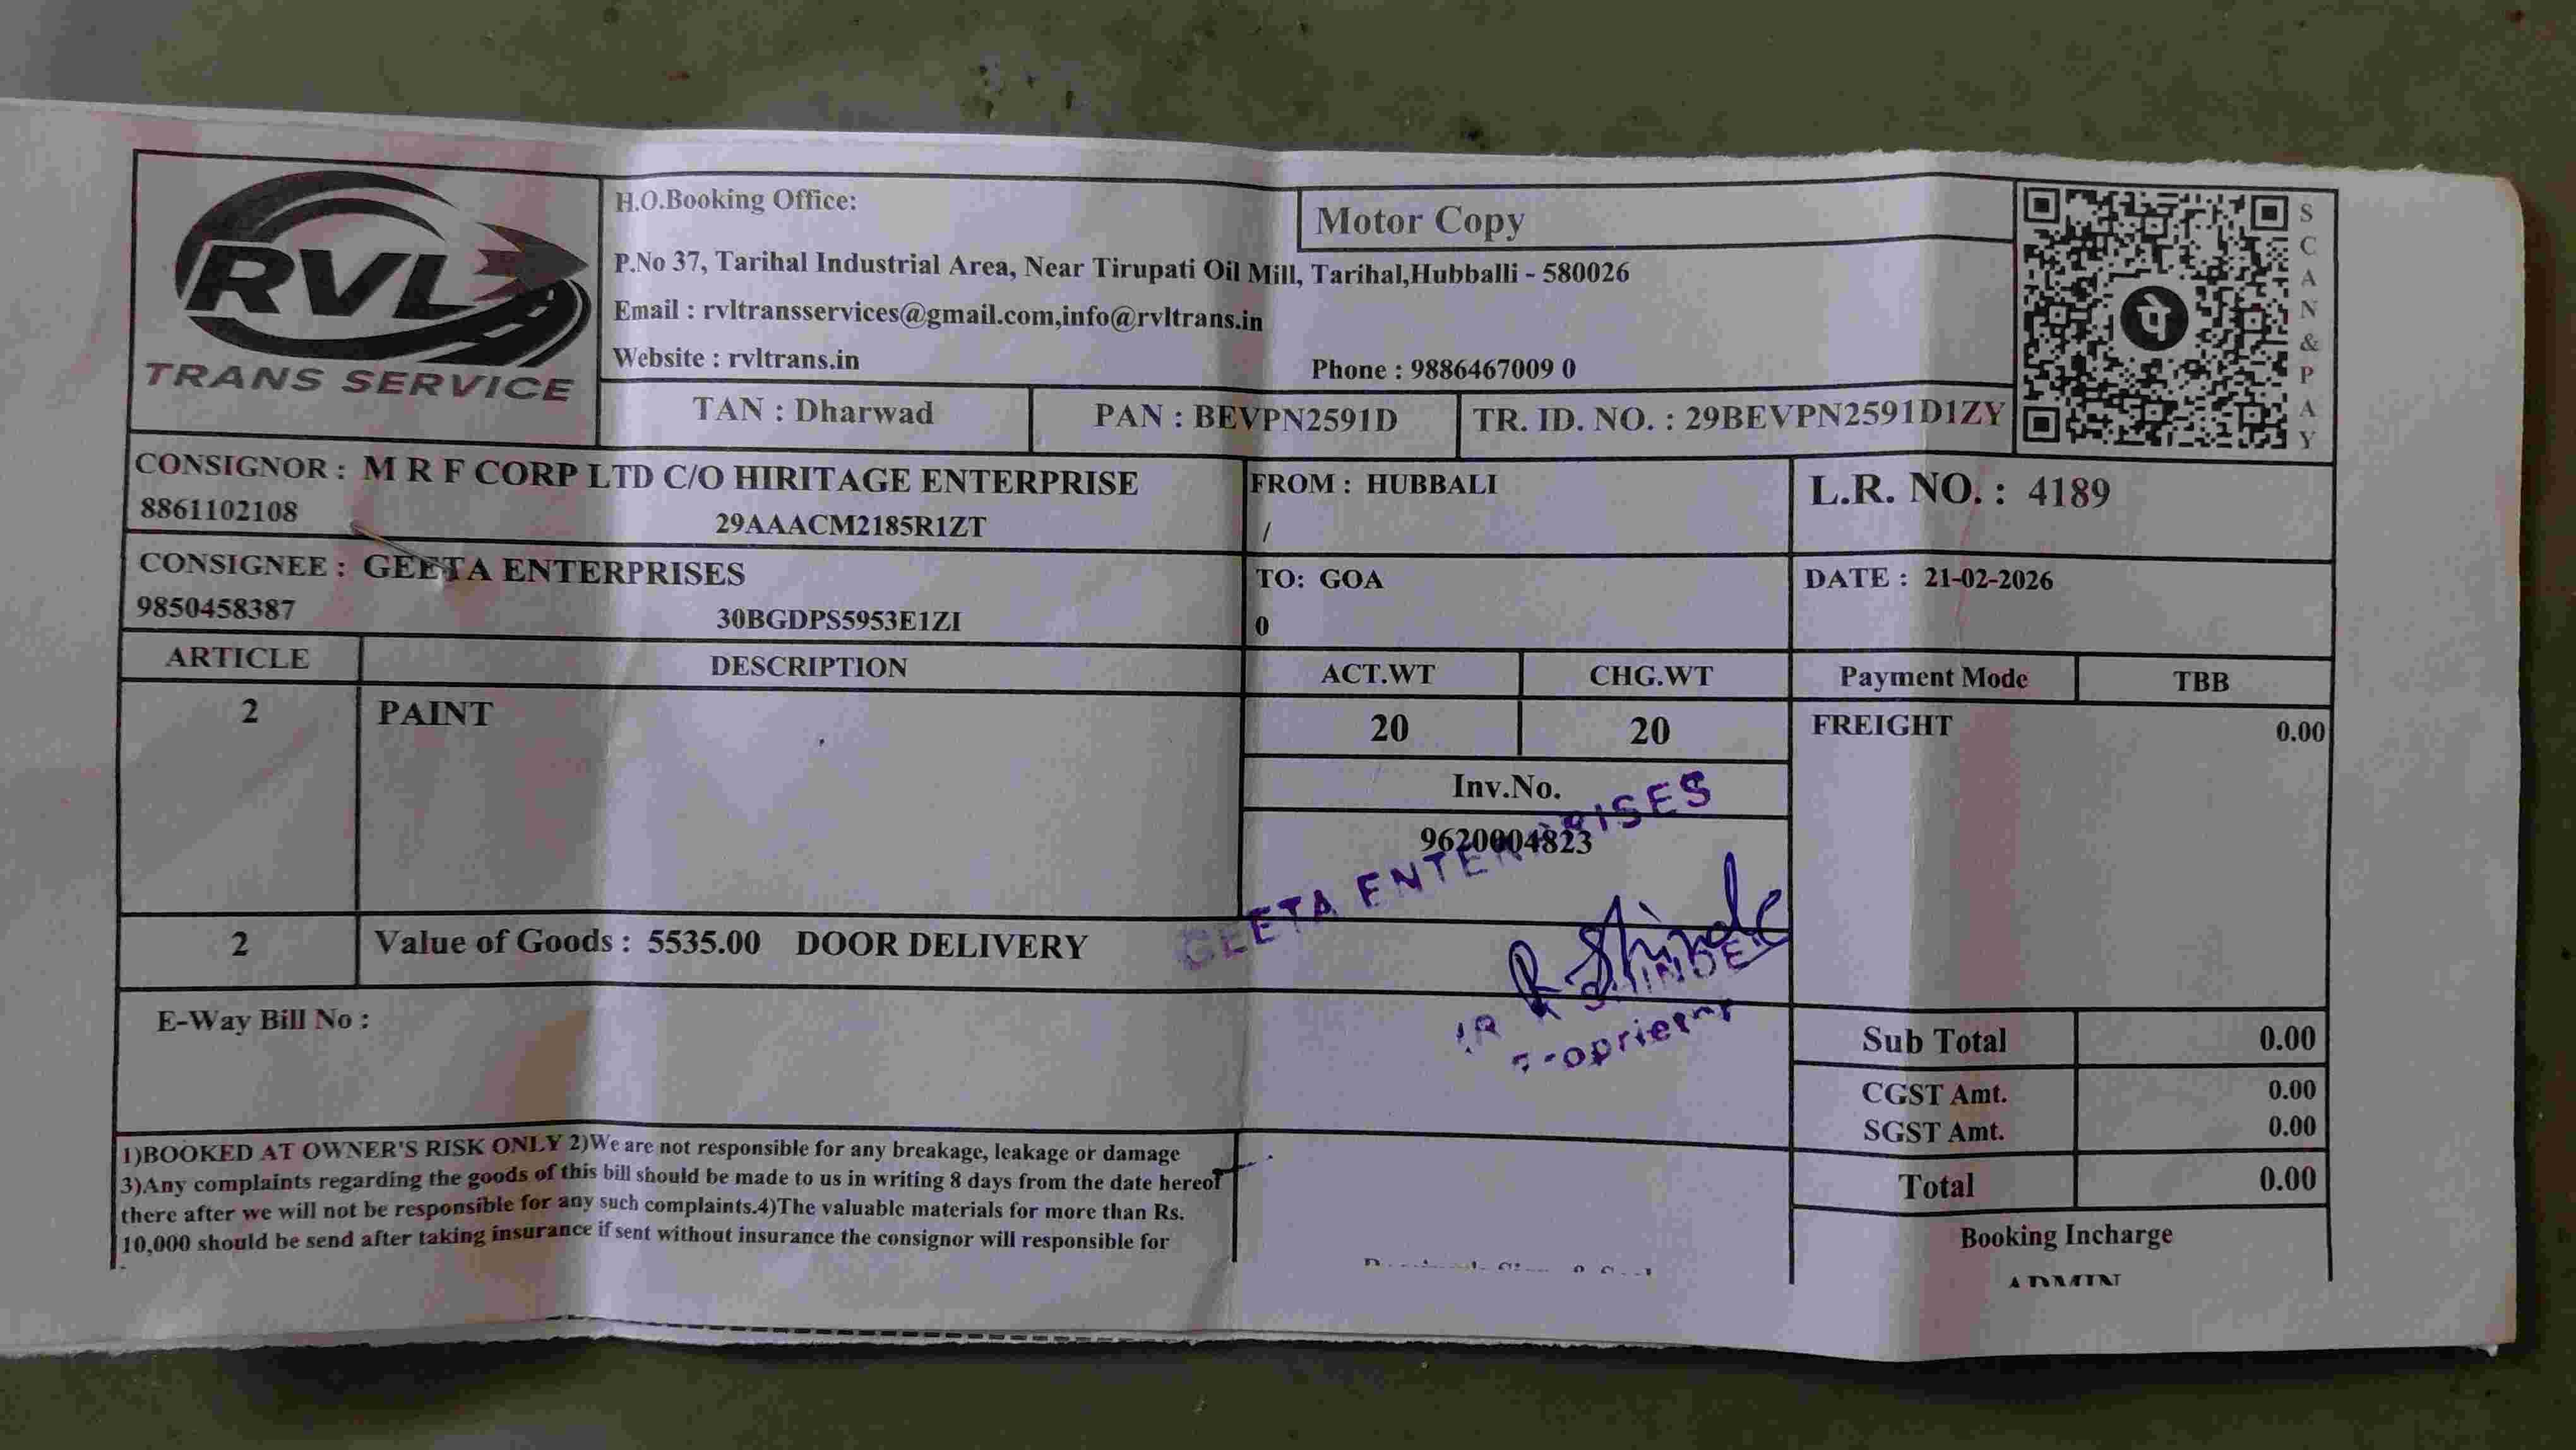 RVL
TRANS SERVICE
H.O.Booking Office:
Motor Copy
P.No 37, Tarihal Industrial Area, Near Tirupati Oil Mill, Tarihal,Hubballi - 580026
Email : rvltransservices@gmail.com,info@rvltrans.in
Website : rvltrans.in
Phone : 9886467009 0
SCAN&PAY
पे
TAN : Dharwad
PAN : BEVPN2591D
TR. ID. NO. : 29BEVPN2591D1ZY
CONSIGNOR : M R F CORP LTD C/O HIRITAGE ENTERPRISE
8861102108
29AAACM2185R1ZT
FROM : HUBBALI
/
L.R. NO. : 4189
CONSIGNEE : GEETA ENTERPRISES
9850458387
30BGDPS5953E1ZI
TO: GOA
0
DATE : 21-02-2026
ARTICLE
DESCRIPTION
ACT.WT
CHG.WT
Payment Mode
TBB
2
PAINT
20
20
FREIGHT
0.00
Inv.No.
9620004823
GEETA ENTERPRISES
R Shinde
SHINDE
2
Value of Goods : 5535.00 DOOR DELIVERY
E-Way Bill No :
Sub Total
0.00
CGST Amt.
0.00
SGST Amt.
0.00
Total
0.00
1)BOOKED AT OWNER'S RISK ONLY 2)We are not responsible for any breakage, leakage or damage
3)Any complaints regarding the goods of this bill should be made to us in writing 8 days from the date hereof
there after we will not be responsible for any such complaints.4)The valuable materials for more than Rs.
10,000 should be send after taking insurance if sent without insurance the consignor will responsible for
Booking Incharge
ADMIN